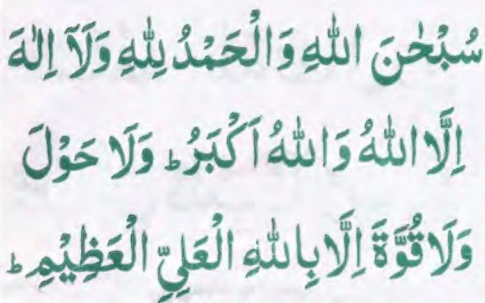 سُبْحٰنَ اللهِ وَالْحَمْدُ لِلّٰهِ وَلَآ اِلٰهَ
اِلَّا اللهُ وَاللهُ اَكْبَرُ ؕ وَلَا حَوْلَ
وَلَا قُوَّةَ اِلَّا بِاللهِ الْعَلِيِّ الْعَظِيْمِ ؕ